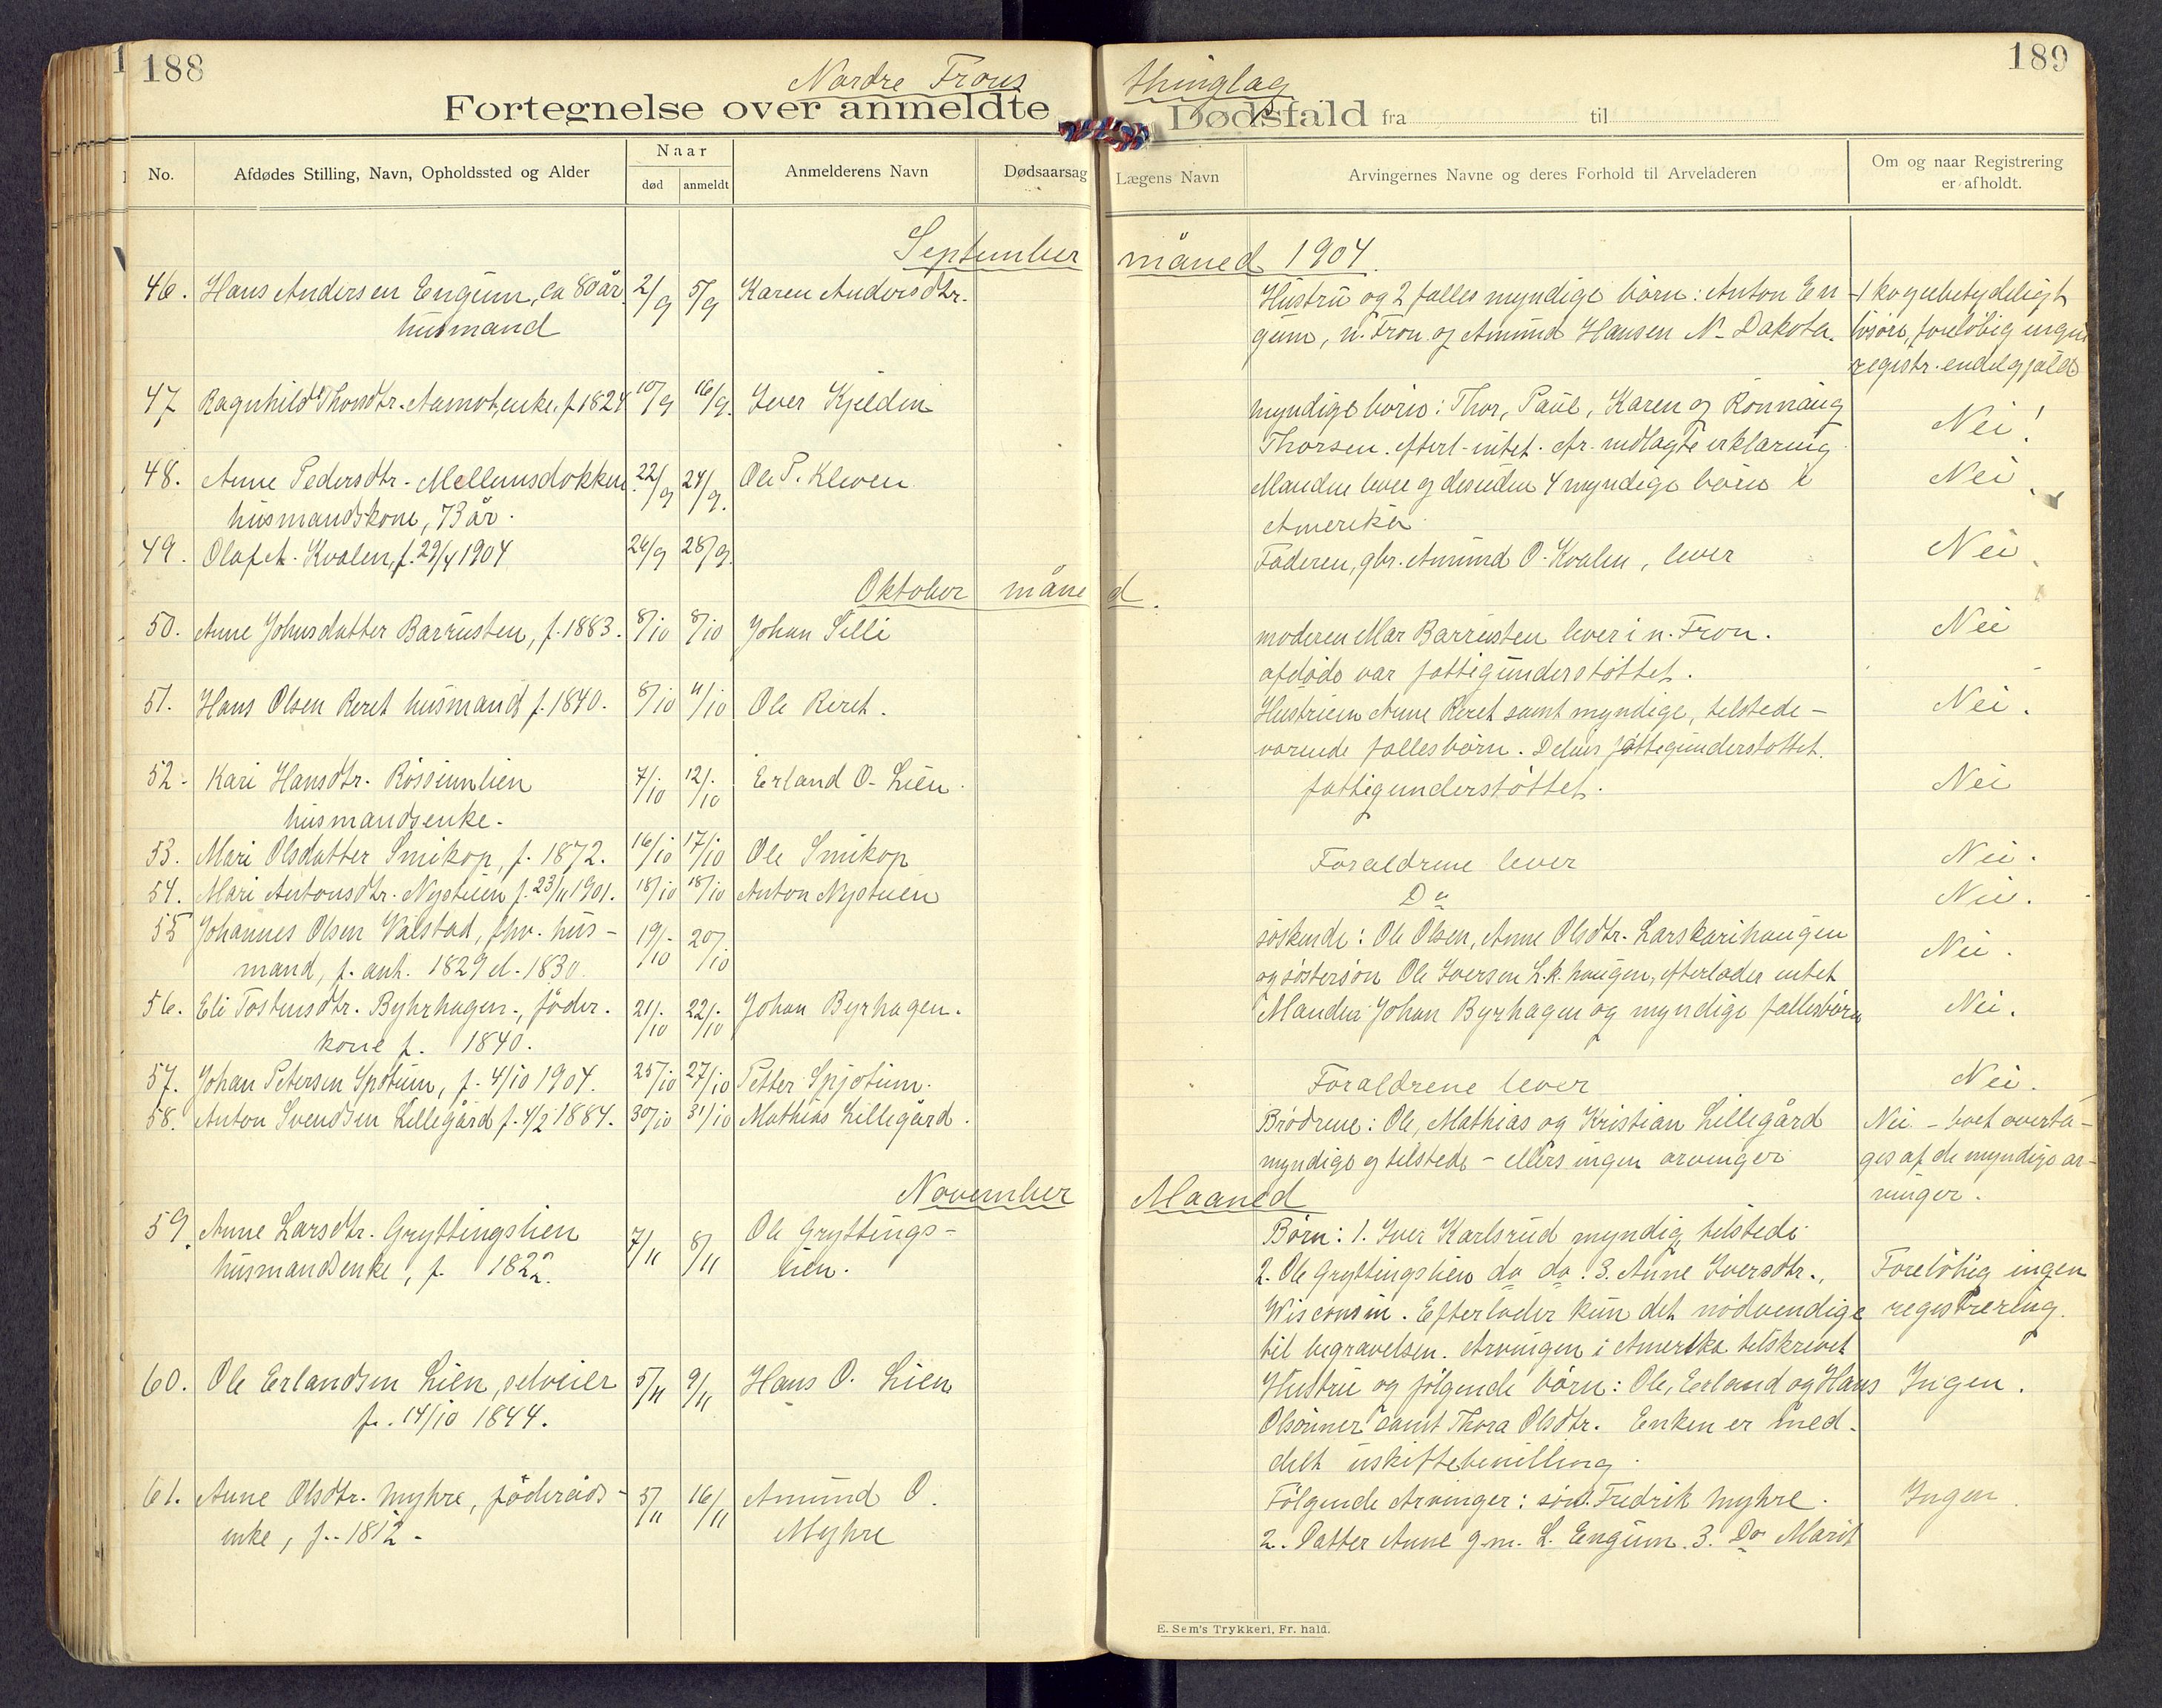 188
189
Nordre Frons thinglag
Fortegnelse over anmeldte Dødsfald fra til
No.
Afdødes Stilling, Navn, Opholdssted og Alder
Naar
død
anmeldt
Anmelderens Navn
Dødsaarsag
Lægens Navn
Arvingernes Navne og deres Forhold til Arveladeren
Om og naar Registrering
er afholdt.
September måned 1904.
46. Hans Andersen Engum, ca 80 år 2/9 5/9 Karen Andersdtr. Hustru og 2 fælles myndige børn: Anton En-
husmand gum, n. Fron og Amund Hansen N. Dakota.
løsøre, foreløbig ingen
registr.
47 Ragnhild Thorsdtr. Aamot, enke. f. 1824 10/9 16/9. Iver Kjelden myndige børn: Thor, Paul, Karen og Rønnaug Nei!
Thorsen. efterl. intet. vedlagte erklæring
48. Anne Pedersdtr. Mellumsdokken 22/9 24/9. Ole P. Kleven Manden lever og desuden 4 myndige børn i Nei
husmandskone, 73 år. Amerika
49. Olaf A. Kvalen, f. 29/4 1904 26/9 28/9. Faderen, gbr. Amund O. Kvalen, lever Nei
Oktober måned.
50. Anne Johnsdatter Barrusten, f. 1883. 8/10 8/10 Johan Selli moderen Mar Barrusten lever i n. Fron. Nei
afdøde var fattigunderstøttet.
51. Hans Olsen Reret husmand f. 1840. 8/10 11/10 Ole Reret. Hustruen Anne Reret samt myndige, tilstede- Nei.
værende fællesbørn. Delvis fattigunderstøttet.
52. Kari Hansdtr. Røssumlien 7/10 12/10 Erland O. Lien. fattigunderstøttet. Nei
husmandsenke.
53. Mari Olsdatter Smikop, f. 1872. 16/10 17/10 Ole Smikop Forældrene lever Nei.
54. Mari Antonsdtr. Nystuen f. 23/11 1901. 18/10 18/10 Anton Nystuen Do Nei.
55 Johannes Olsen Valstad, fhv. hus- 19/10 20/10 søskende: Ole Olsen, Anne Olsdtr. Larskarihaugen Nei.
mand, f. ant. 1829 el. 1830. og søstersøn Ole Iversen L.k. haugen, efterlader intet
56. Eli Tostensdtr. Byhrhagen, føder. 21/10 22/10 Johan Byrhagen. Manden Johan Byrhagen og myndige fællesbørn Nei.
kone f. 1840.
57. Johan Petersen Spotum, f. 4/10 1904. 25/10 27/10 Petter Spjotum. Forældrene lever Nei.
58. Anton Svendsen Lillegård f. 4/2 1884. 30/10 31/10 Mathias Lillegård. Brødrene: Ole, Mathias og Kristian Lillegård Nei - boet overta-
myndige og tilstede - ellers ingen arvinger ges af de myndige ar-
vinger.
November Maaned
59. Anne Larsdtr. Gryttingslien 7/11 8/11 Ole Gryttings- Børn: 1. Iver Karlsrud myndig tilstede.
husmandsenke, f. 1822. lien. 2. Ole Gryttingslien do do. 3. Anne Iversdtr., Foreløbig ingen
Wisconsin. Efterlader kun det nødvendige registrering.
til begravelsen. Arvingen i Amerika tilskrevet
60. Ole Erlandsen Lien, selveier 5/11 9/11 Hans O. Lien Hustru og følgende børn: Ole, Erland og Hans Ingen.
f. 14/10 1844. Olsønner samt Thora Olsdtr. Enken er med-
delt uskiftebevilling.
61. Anne Olsdtr. Myhre, føderåds- 5/11 16/11 Amund O. Følgende Arvinger: søn. Fredrik Myhre. Ingen.
enke, f. 1812. Myhre 2. Datter Anne g.m. L. Engum. 3. Do Marit
E. Sem's Trykkeri, Fr. hald.